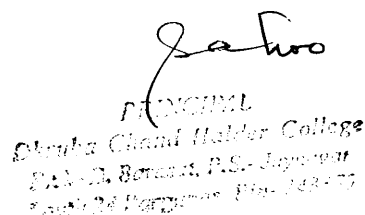 Sahoo
PRINCIPAL
Dhruba Chand Halder College
P.O.- D. Barasat, P.S.- Jaynagar
South 24 Parganas, Pin-